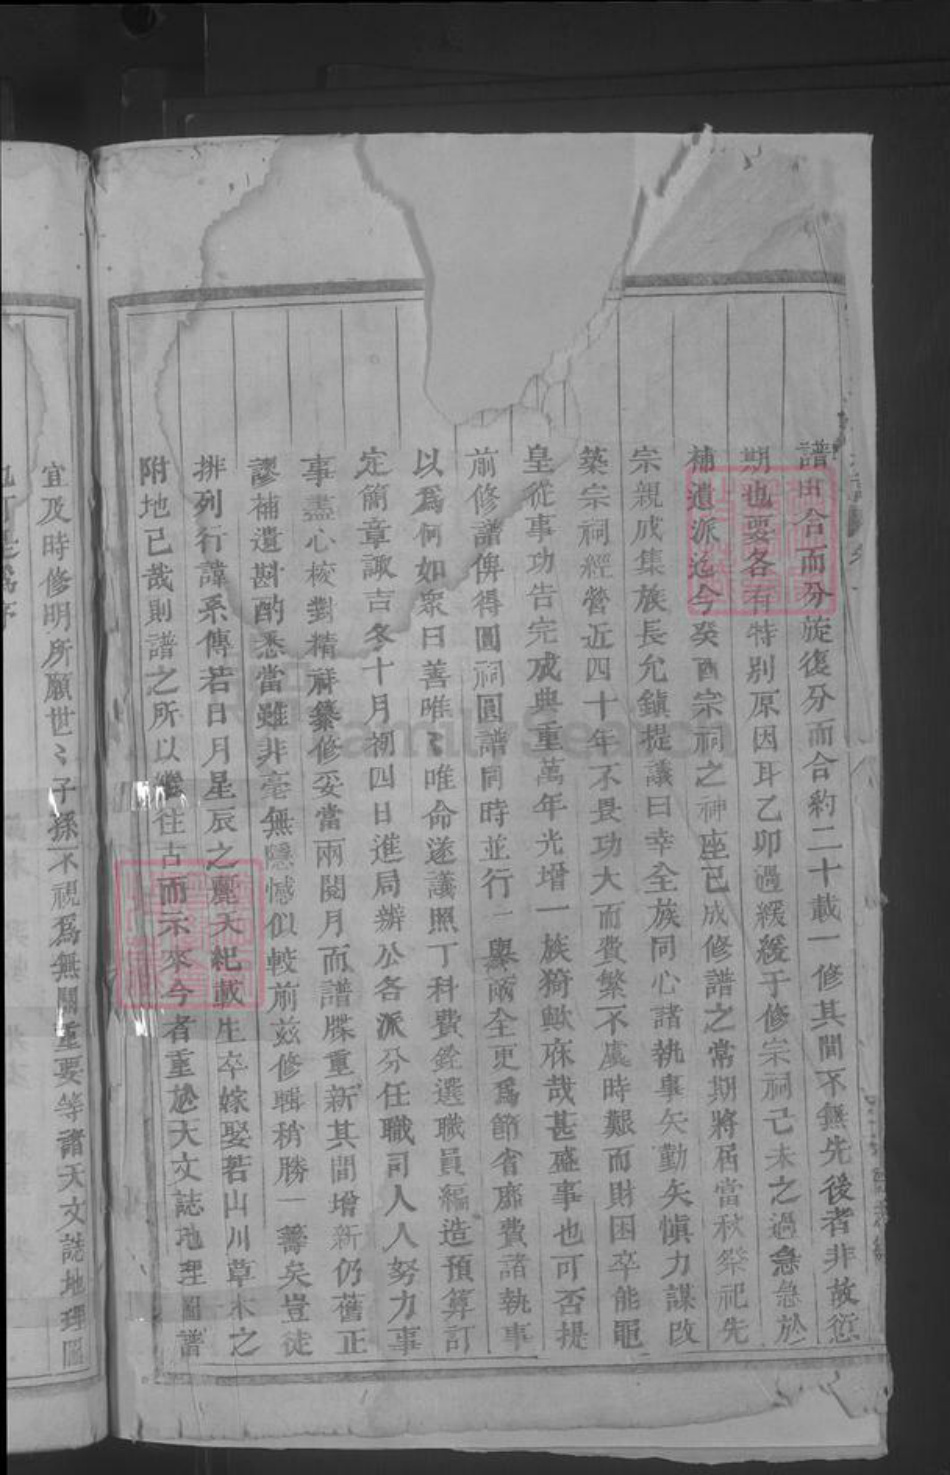 譜由合而分旋復分而合約二十載一修其間不無先後者非故愆
期也要各有特別原因耳乙卯過緩緩于修宗祠己未之過急急於
補遺派迄今癸酉宗祠之神座已成修譜之常期將屆當秋祭祀先
宗親咸集族長允鎮提議曰幸全族同心諸執事矢勤矢慎力謀改
築宗祠經營近四十年不畏功大而費繁不虞時艱而財困卒能黽
皇從事功告完成典重萬年光增一族猗歟庥哉甚盛事也可否提
前修譜俾得圓祠圓譜同時並行一舉兩全更爲節省靡費諸執事
以爲何如衆曰善唯〻唯命遂議照丁科費銓選職員編造預算訂
定簡章諏吉冬十月初四日進局辦公各派分任職司人人努力事
事盡心校對精詳纂修妥當兩閱月而譜牒重新其間增新仍舊正
謬補遺斟酌悉當雖非毫無隱憾似較前兹修輯稍勝一籌矣豈徒
排列行諱系傳若日月星辰之麗天紀載生卒嫁娶若山川草木之
附地已哉則譜之所以繼往古而示來今者重於天文誌地理圖譜
宜及時修明所願世〻子孫不視爲無關重要等諸天文誌地理圖